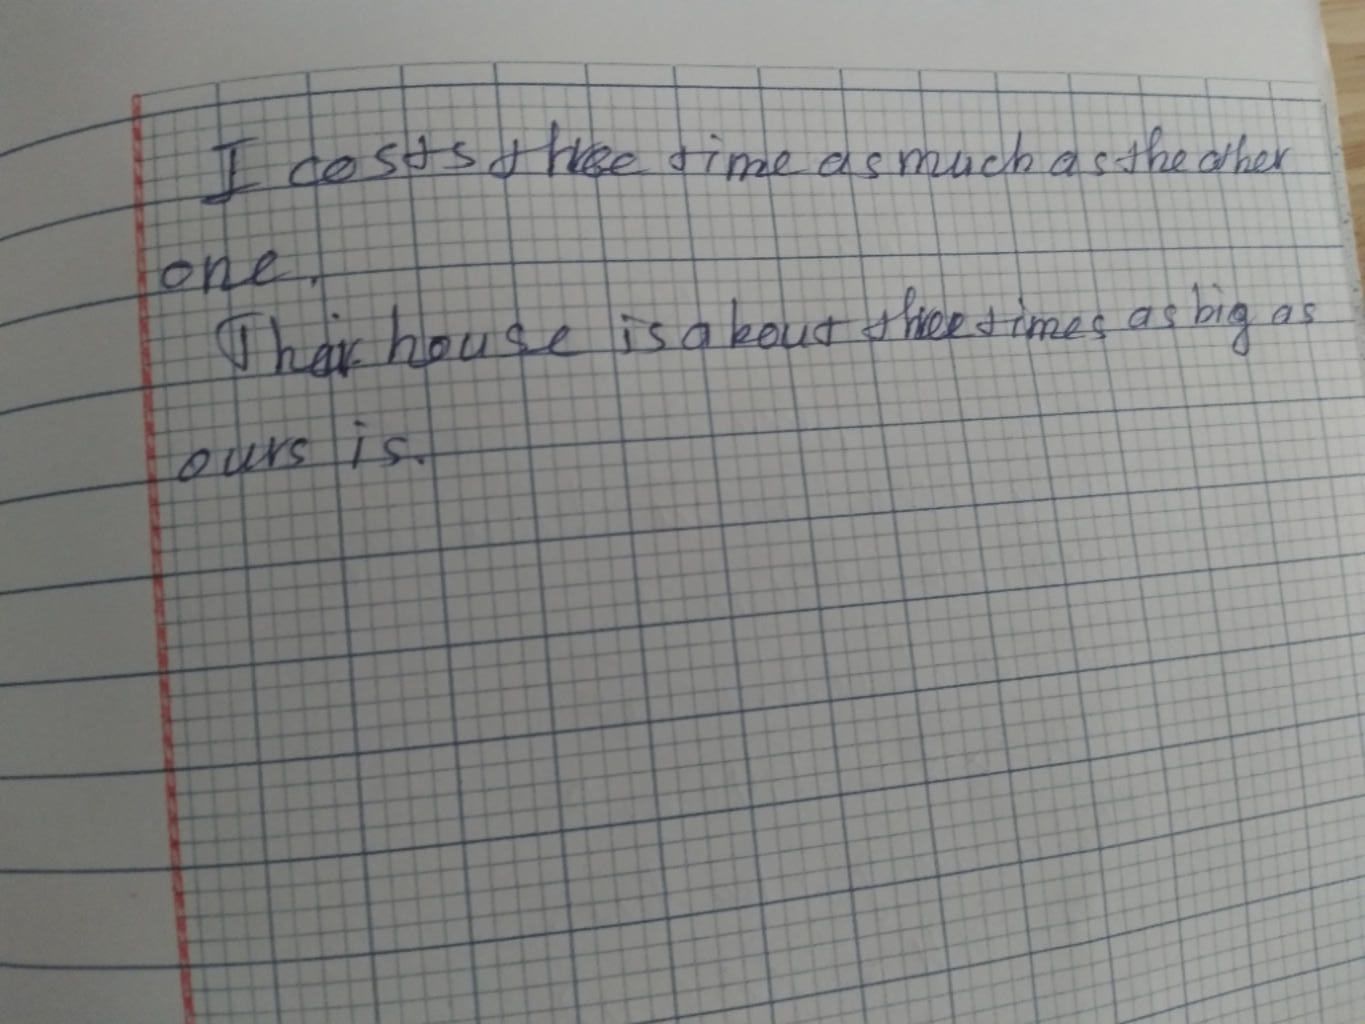 I costs three time as much as the other
one.
Their house is about three times as big as
ours is.